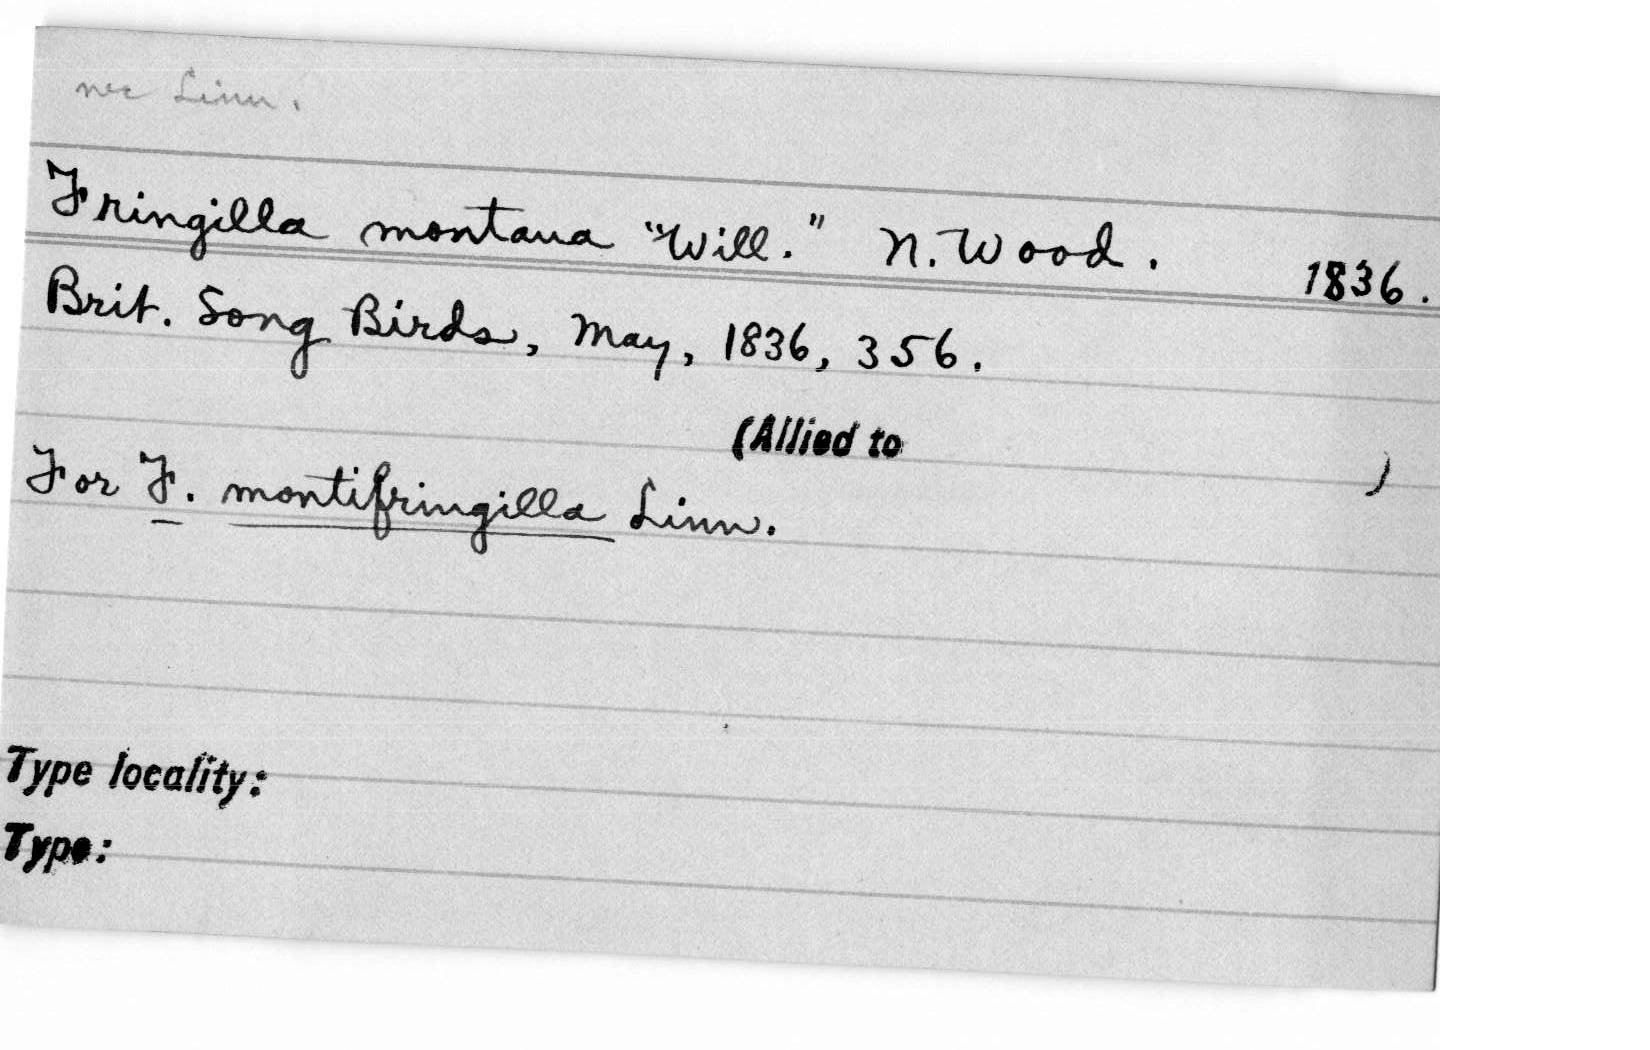 nec Linn.
Fringilla montana "Will." N. Wood. 1836.
Brit. Song Birds, May, 1836, 356.
(Allied to )
For F. montifringilla Linn.
Type locality:
Type: